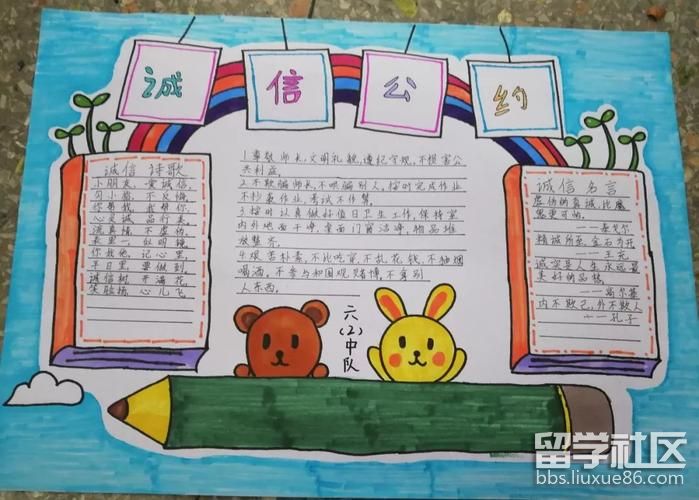 诚信公约
诚信诗歌
小朋友,爱诚信,
你帮我,我帮你,
心灵诚,品行美,
流真情,不虚伪,
表里一,似明镜,
你我他,记心里,
平日里,要做到,
诚信树,开满花,
笑脸扬,心儿飞,
1.尊敬师长,文明礼貌,遵纪守规,不损害公
共利益。
2.不欺骗师长,不哄骗别人,按时完成作业
不抄袭作业,考试不作弊。
3.按时认真做好值日卫生工作,保持室
内外地面干净,桌面门窗洁净,物品堆
放整齐。
4.艰苦朴素,不比吃穿,不乱花钱,不抽烟
喝酒,不参与和围观赌博,不拿别
人东西。
诚信名言
虚伪的真诚,比魔
鬼更可怕。
——泰戈尔
精诚所至,金石为开
——王充
诚实是人生永远最
美好的品格。
——高尔基
内不欺己,外不欺人
——孔子
六(2)中队
留学社区
bbs.liuxue86.com